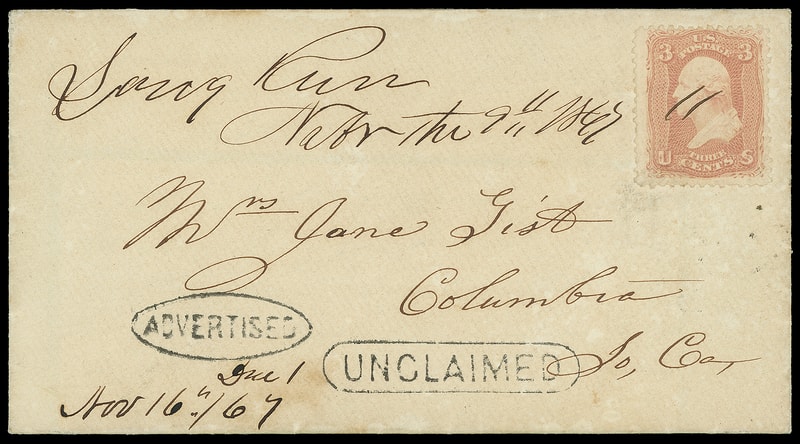 Long Run
Nebr the 9th 1867
3 U.S. POSTAGE 3
11
U THREE CENTS S
Mrs Jane Gist
Columbia
So, Ca,
ADVERTISED
UNCLAIMED
Due 1
Nov 16th/67